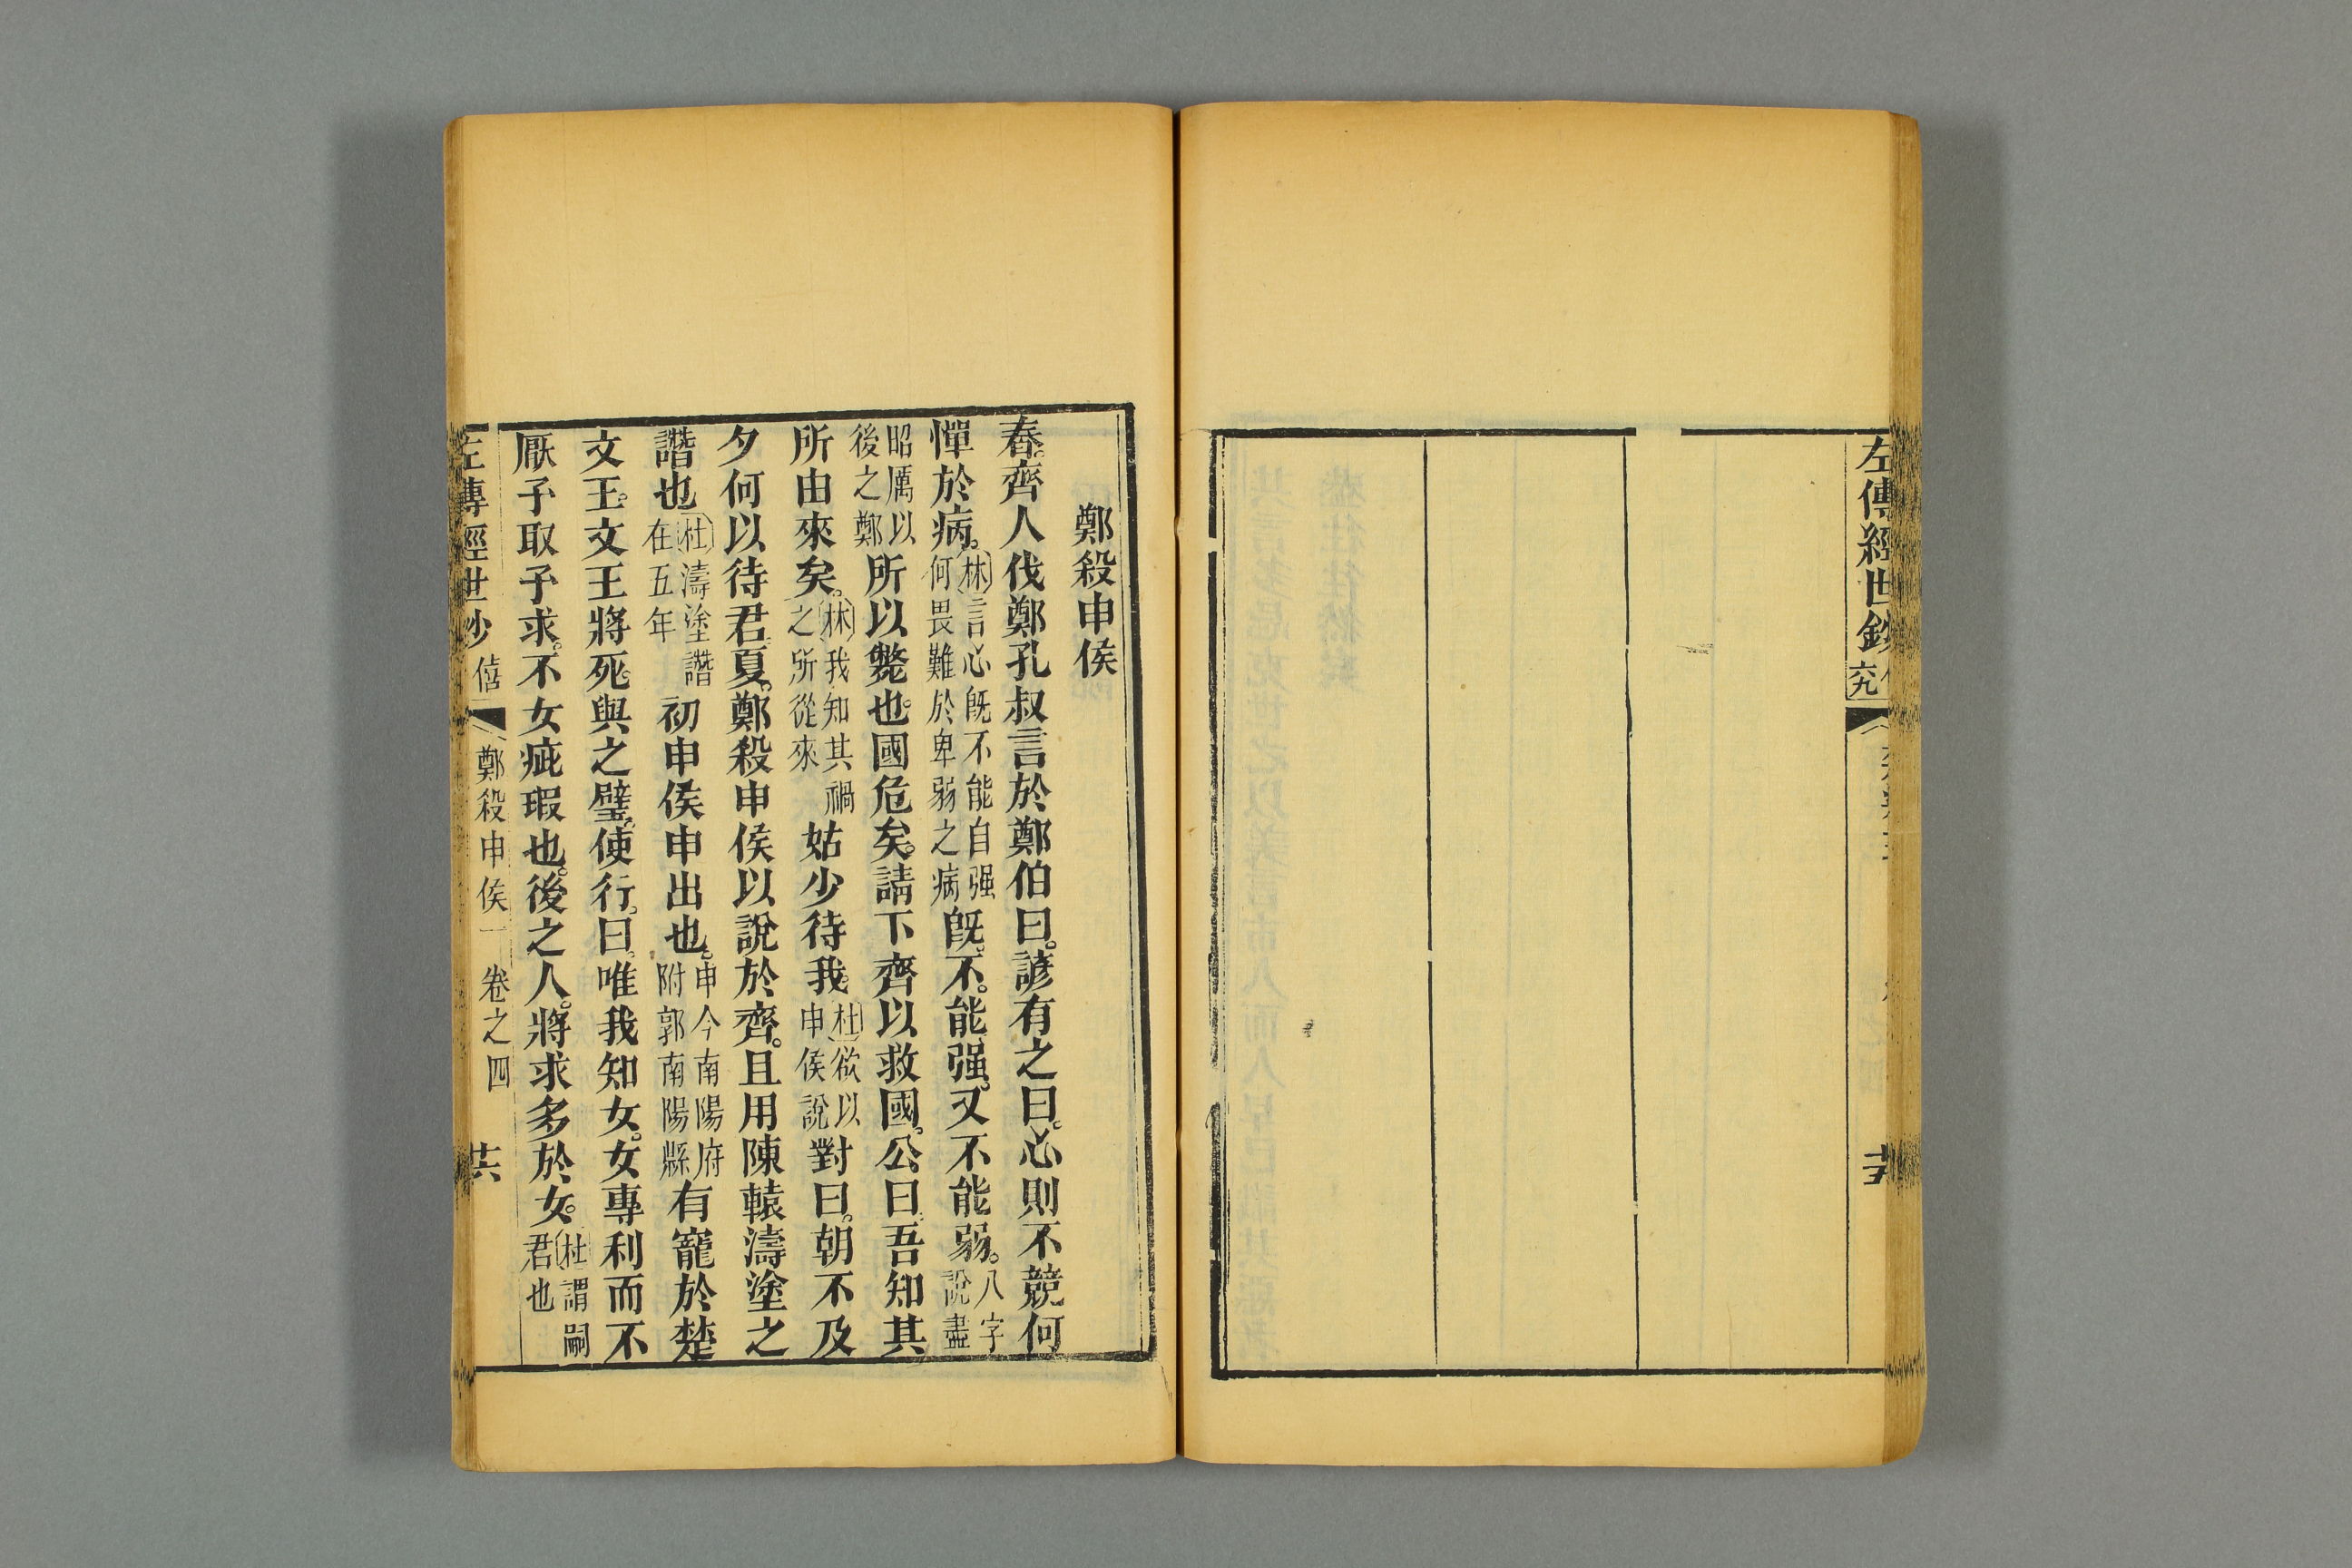 左傳經世鈔
鄭殺申侯
春。齊人伐鄭孔叔言於鄭伯曰。諺有之曰。心則不競何
憚於病。㊍林言心既不能自强何畏難於卑弱之病既。不。能。强。又不能弱。八字說盡
昭厲以後之鄭所以斃也。國危矣。請下齊以救國。公曰。吾知其
所由來矣。林我知其禍之所從來姑少待我。杜欲以申侯說對曰。朝不及
夕何以待君。夏。鄭殺申侯以說於齊。且用陳轅濤塗之
譖也杜濤塗譖在五年初申侯申出也。申今南陽府附郭南陽縣有寵於楚
文王。文王將死。與之璧。使行。曰。唯我知女。女專利而不
厭予取予求。不女疵瑕也。後之人。將求多於女。杜謂嗣君也
左傳經世鈔 僖 鄭殺申侯一 卷之四 廿六